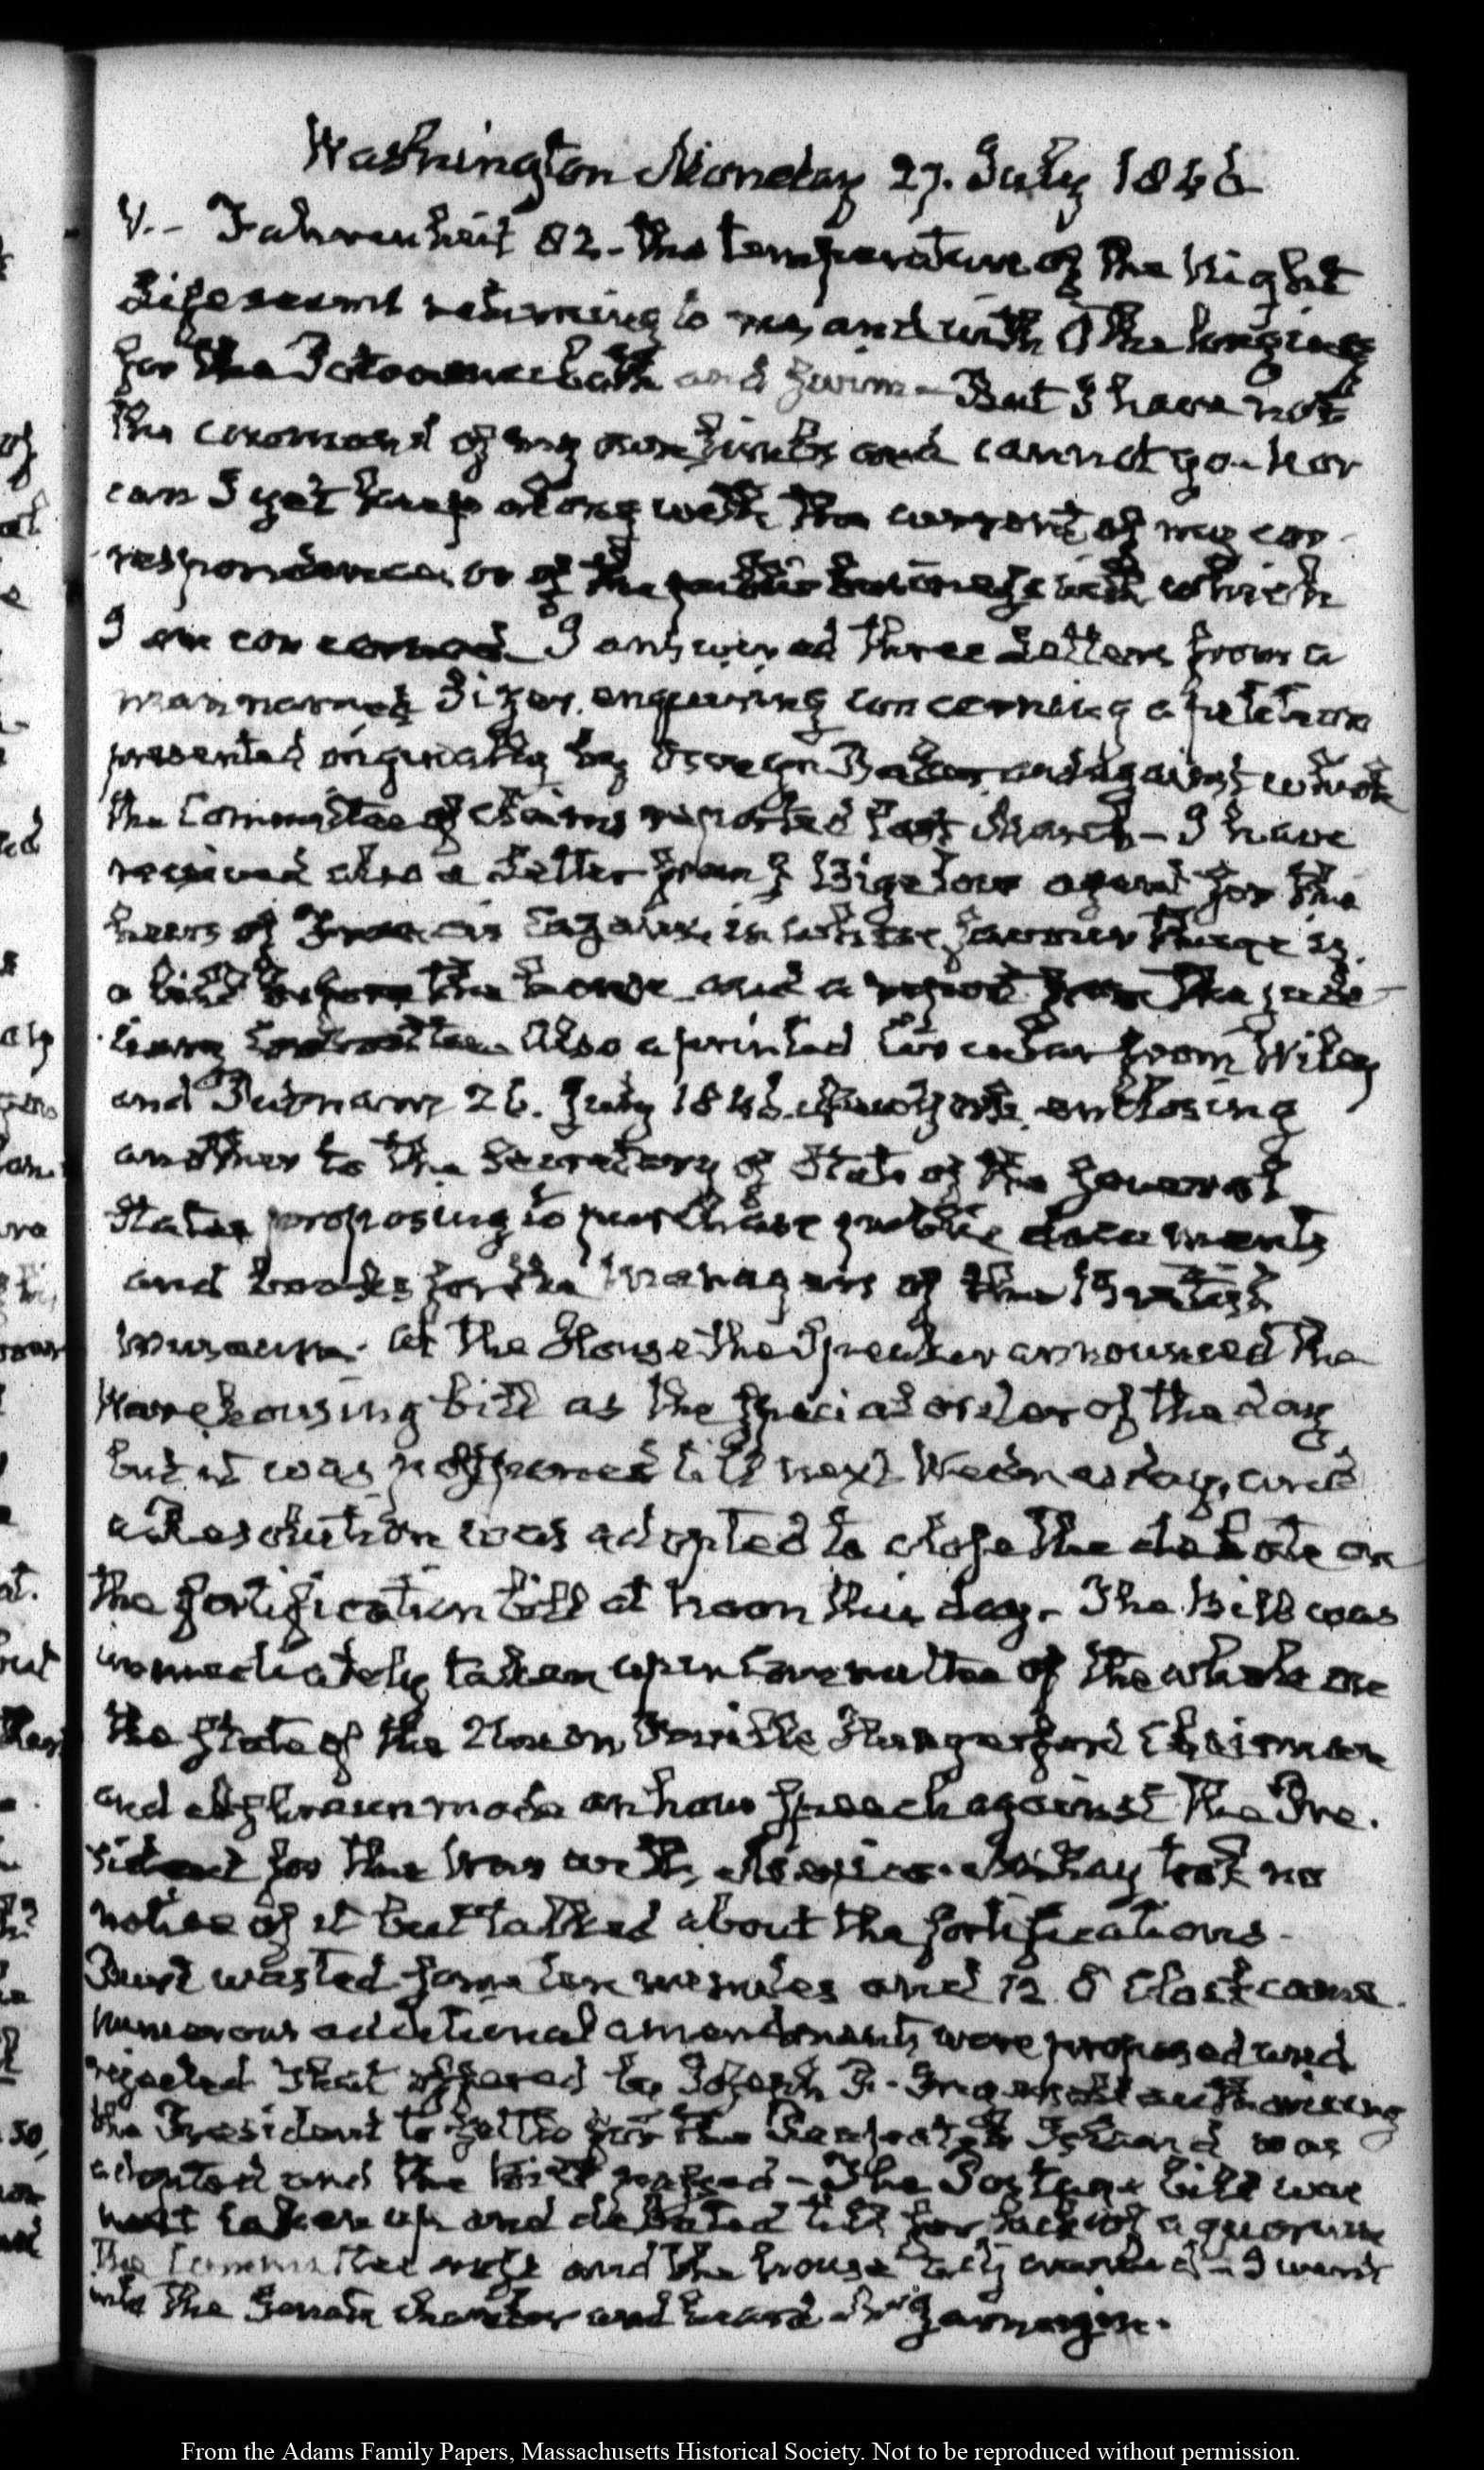 Washington Monday 27. July 1846
V.- Fahrenheit 82- the temperature of the Night
returning to me, and with it the longings
for the Potomac bath and swim- But I have not
the command of my own limbs and cannot go- nor
can I yet keep along with the current of my cor-
respondence, or of the public business with which
I am concerned- I answered three Letters from a
man named enquiring concerning a petition
presented originally by and against which
the Committee of Claims reported last March- I have
received also a Letter from J Bigelow agent for the
heirs of Francis Cazeau, in whose favour there is
a bill before the house and a report from the judi-
ciary Committee Also a printed Circular from Wiley
and Putnam 26. July 1846. New York, enclosing
another to the Secretary of State of the several
States proposing to purchase public documents
and books for the Managers of the British
Museum. At the House the Speaker announced the
Warehousing bill as the special order of the day
but it was postponed till next Wednesday, and
a Resolution was adopted to close the debate on
the fortification bill at noon this day- The Bill was
immediately taken up in Committee of the whole on
the state of the Union, Orville Hungerford Chairman
and made an hour speech against the Pre-
sident for the War with Mexico. took no
notice of it but talked about the fortifications-
wasted some ten minutes and 12 O'Clock came.
numerous additional amendments were proposed and
rejected that offered by Joseph R. Ingersoll authorising
the President to settle for the Pea patch Island was
adopted and the bill passed- The Postage bill was
next taken up and debated till for lack of a quorum
the Committee rose and the house adjourned- I went
into the Senate chamber and heard Jarnagin.